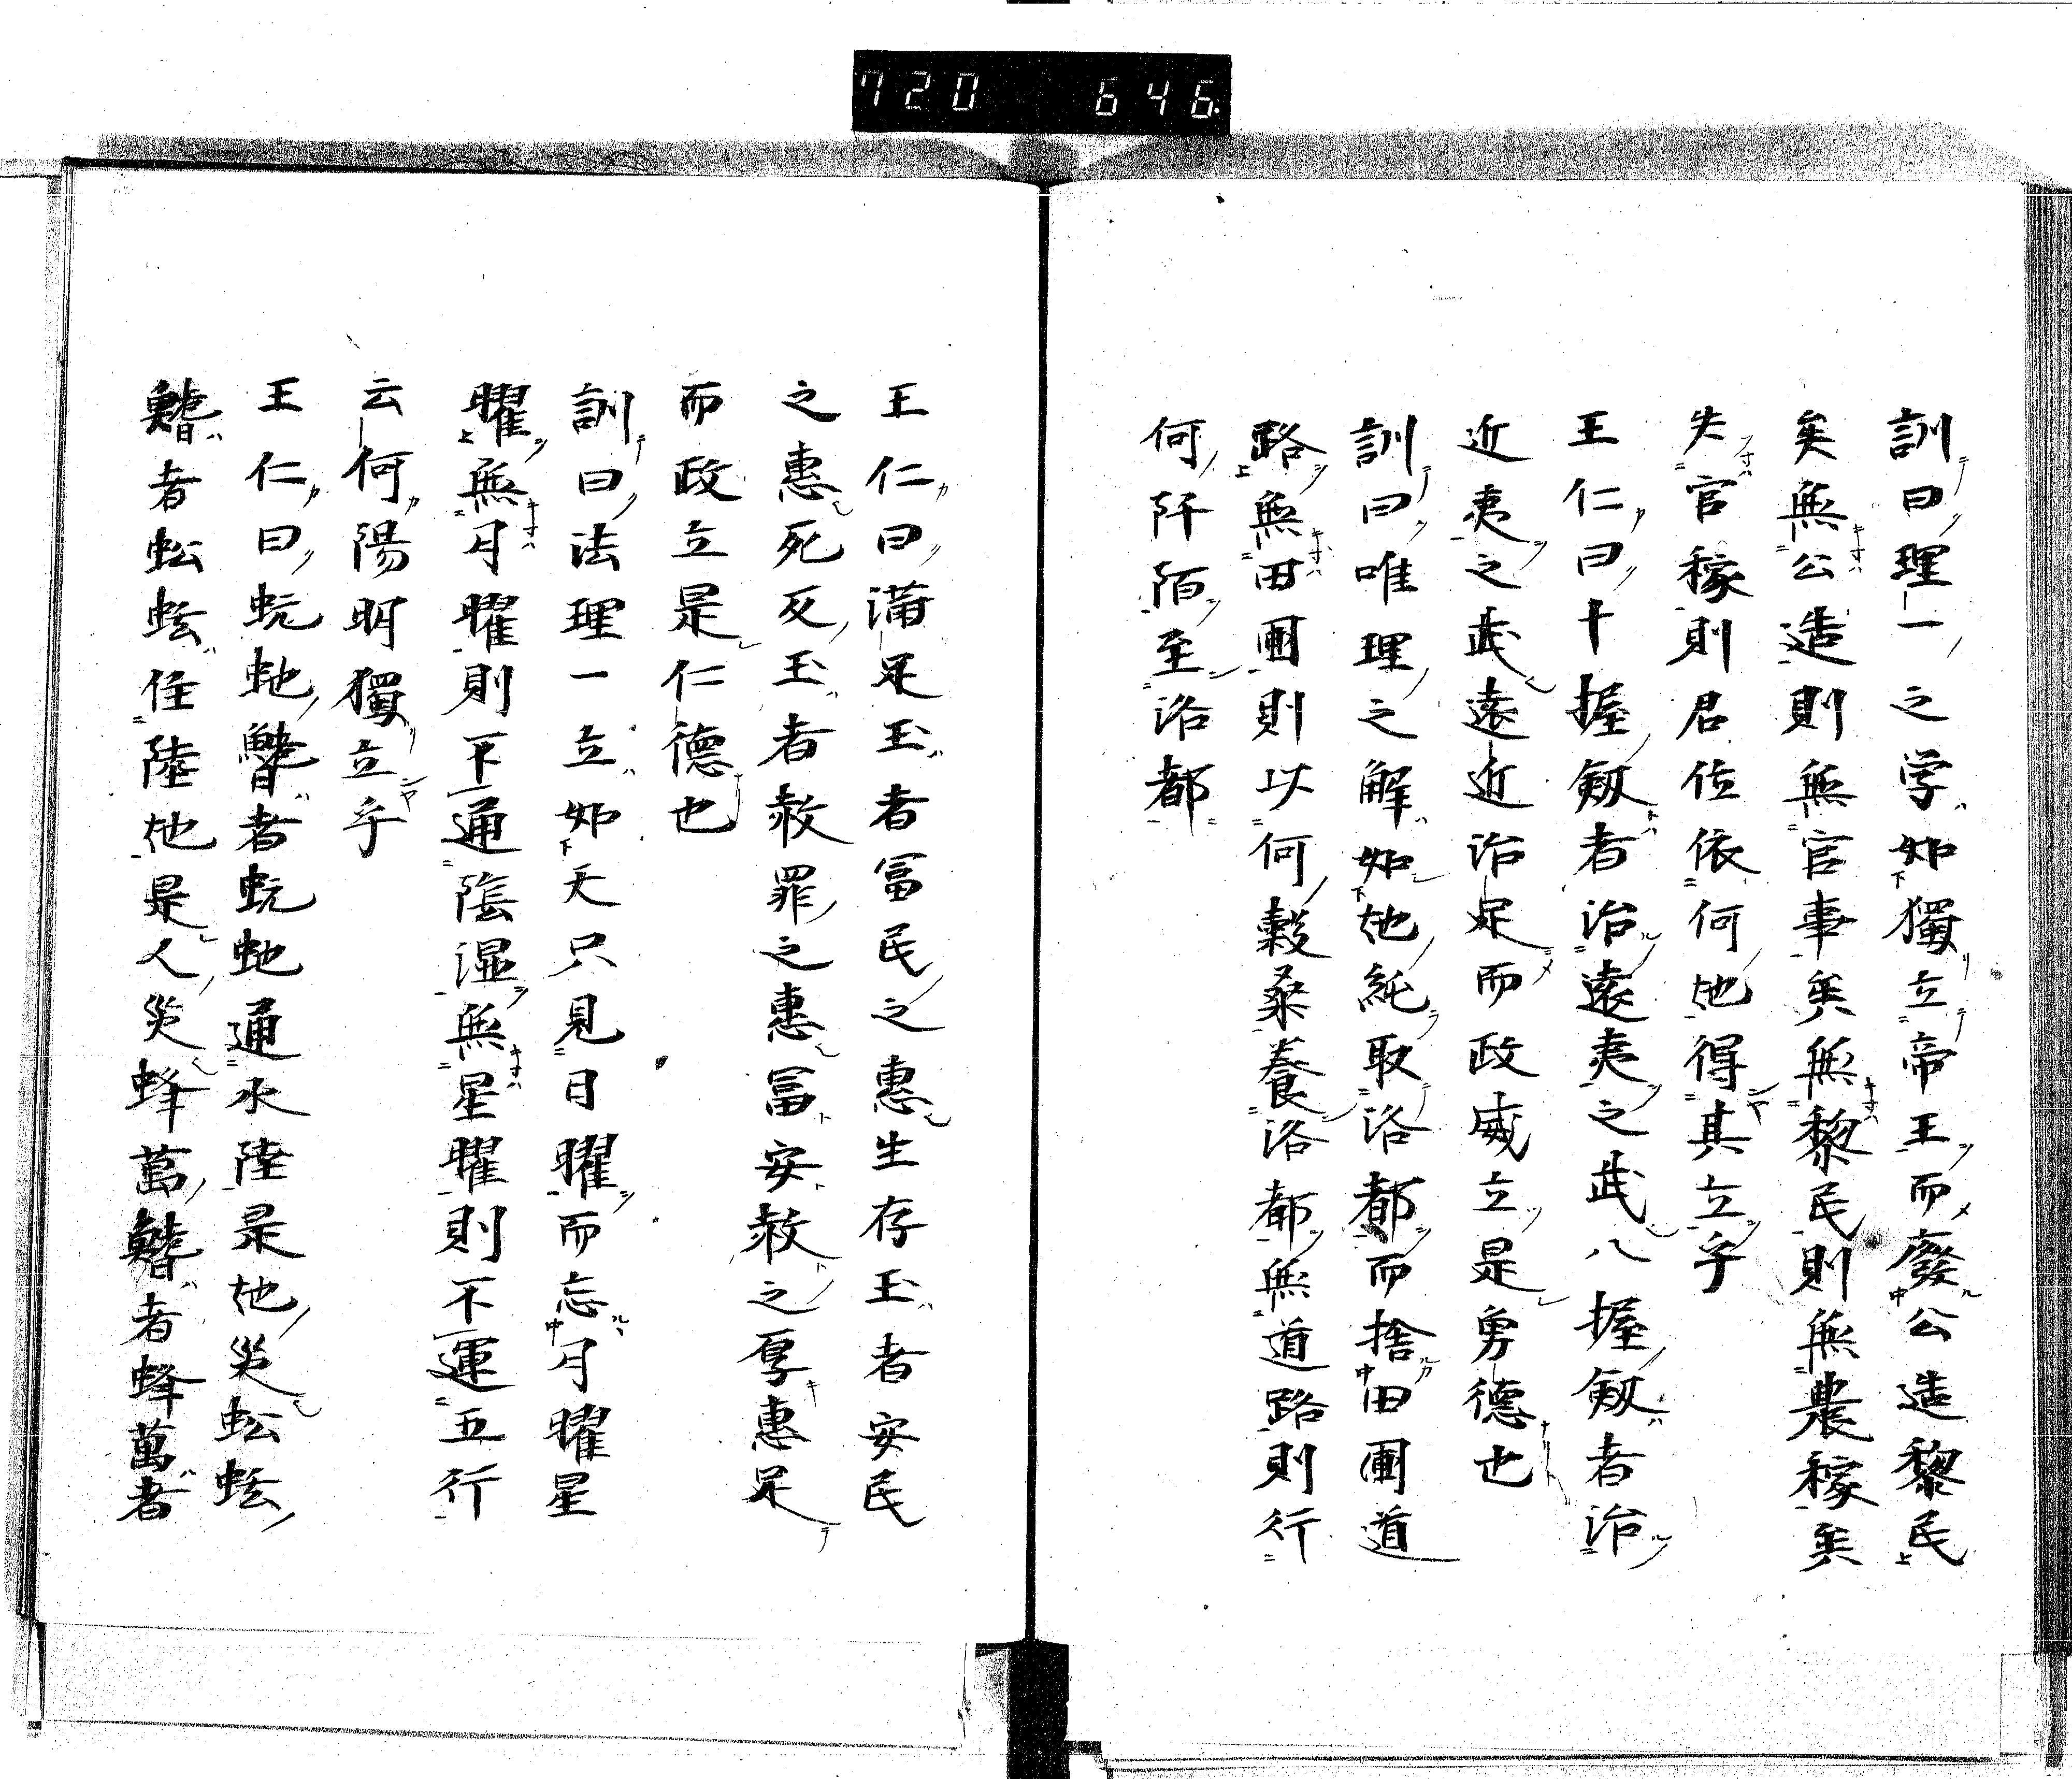 720 646
訓曰理一之学如獨立帝王而廢公造黎民
矣無公造則無官事矣無黎民則無農稼矣
失官稼則君位依何地得其立乎
王仁曰十握剱者治遠夷之武八握剱者治
近夷之武遠近治足而政威立是勇德也
訓曰唯理之解如地純取洛都而捨田圃道
路無田圃則以何穀桑養洛都無道路則行
何阡陌至洛都
王仁曰満足玉者冨民之惠生存玉者安民
之惠死反玉者赦罪之惠冨安赦之厚惠足
而政立是仁德也
訓曰法理一立如天只見日曜而忘月曜星
曜無月曜則不通陰湿無星曜則不運五行
云何陽明獨立乎
王仁曰蚖虵鰭者蚖虵通水陸是地災蚣蚿
鰭者蚣蚿住陸地是人災蜂萬鰭者蜂萬者